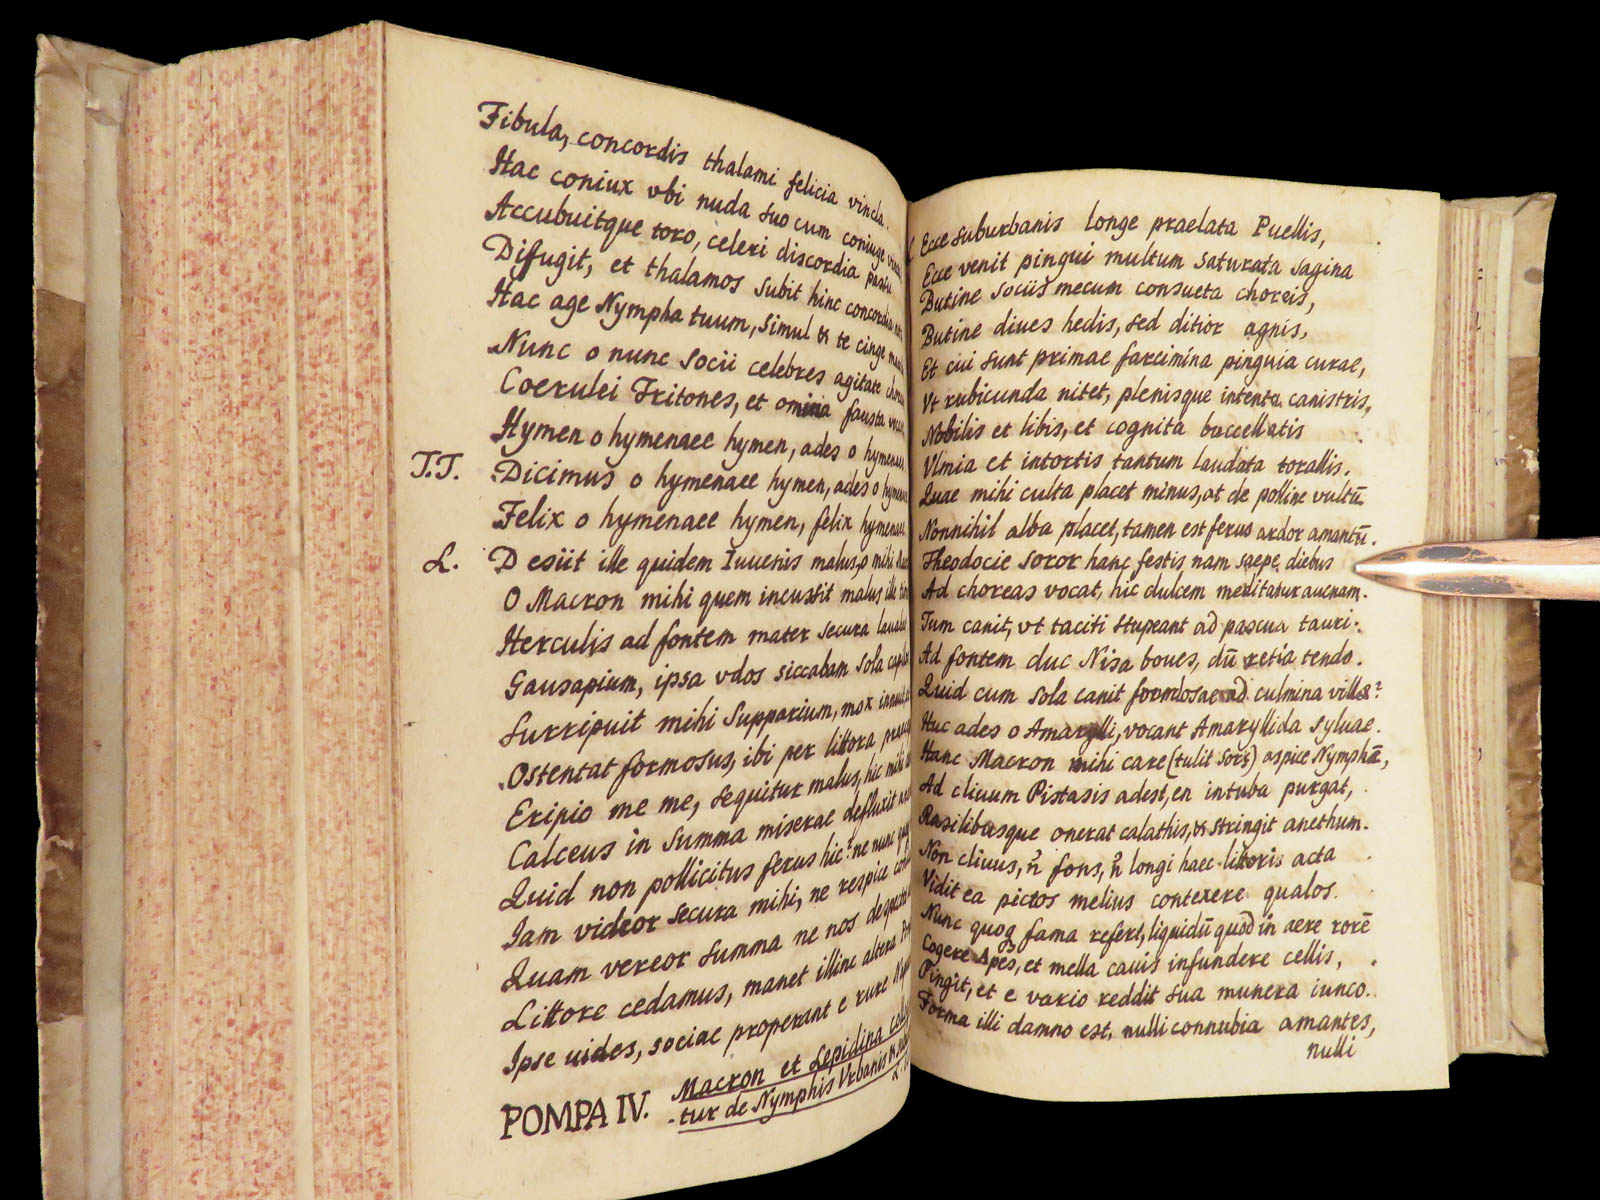 Fibula, concordis thalami felicia vincla.
Hac coniux vbi nuda suo cum coniuge
Accubuitque toro, celeri discordia passu
Diffugit, et thalamos subit hinc concordia
Hac age Nympha tuum, simul & te cinge
Nunc o nunc socii celebres agitate
Coerulei Tritones, et omina fausta
Hymen o hymenaee hymen, ades o hymenaee.
T.T. Dicimus o hymenaee hymen, ades o hymenaee
Felix o hymenaee hymen, felix hymenaee.
L. Desiit ille quidem Iuuenis malus, o mihi
O Macron mihi quem incussit malus ille
Herculis ad fontem mater secura
Gausapium, ipsa vdos siccabam sola
Surripuit mihi Supparium, mox
Ostentat formosus, ibi per littora
Eripio me me, sequitur malus, hic mihi
Calceus in summa miserae defluxit
Quid non pollicitus ferus hic? ne nunc
Iam videor secura mihi, ne respice
Quam vereor summa ne nos
Littore cedamus, manet illinc altera
Ipse uides, sociae properant e rure
POMPA IV. Macron et Lepidina
-tur de Nymphis Vrbanis &
Ecce suburbanis longe praelata Puellis,
Ecce venit pingui multum saturata sagina
Butine sociis mecum consueta choreis,
Butine diues hedis, sed ditior agnis,
Et cui sunt primae farcimina pinguia curae,
Vt rubicunda nitet, plenisque intenta canistris,
Nobilis et libis, et cognita buccellatis
Vlmia et intortis tantum laudata torallis.
Quae mihi culta placet minus, at de polline vultū
Nonnihil alba placet, tamen est ferus ardor amantū.
Theodocie soror hanc festis nam saepe diebus
Ad choreas vocat, hic dulcem meditatur auenam.
Tum canit, vt taciti stupeant ad pascua tauri.
Ad fontem duc Nisa boues, dū retia tendo.
Quid cum sola canit formosae ad culmina villae?
Huc ades o Amarylli, vocant Amaryllida syluae.
Hanc Macron mihi care (tulit sors) aspice Nymphā,
Ad cliuum Pistasis adest, en intuba purgat,
Rasilibusque onerat calathis, & stringit anethum.
Non cliuus, ñ fons, ñ longi haec littoris acta
Vidit ea pictos melius contexere qualos.
Nunc quoq fama refert, liquidū quod in aere rorē
Cogere Apes, et mella cauis infundere cellis,
Pingit, et e vario reddit sua munera iunco.
Forma illi damno est, nulli connubia amantes,
nulli